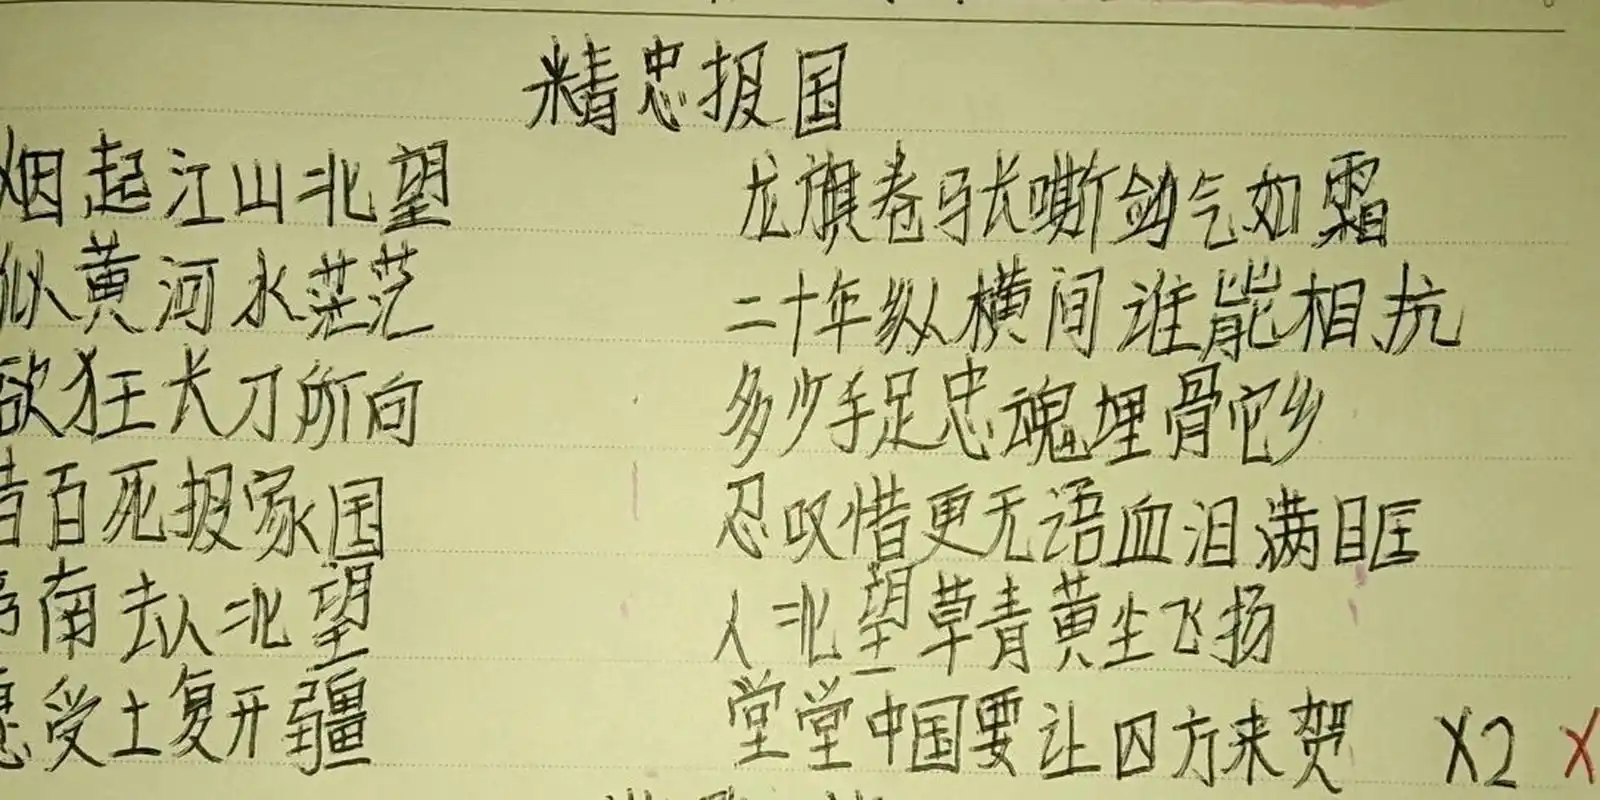 精忠报国
烟起江山北望
龙旗卷马长嘶剑气如霜
似黄河水茫茫
二十年纵横间谁能相抗
欲狂长刀所向
多少手足忠魂埋骨它乡
惜百死报家国
忍叹惜更无语血泪满眶
南去人北望
人北望草青黄尘飞扬
愿受土复开疆
堂堂中国要让四方来贺 X2 X